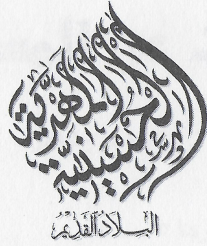 الحسينية المهدية
البلاد القديم